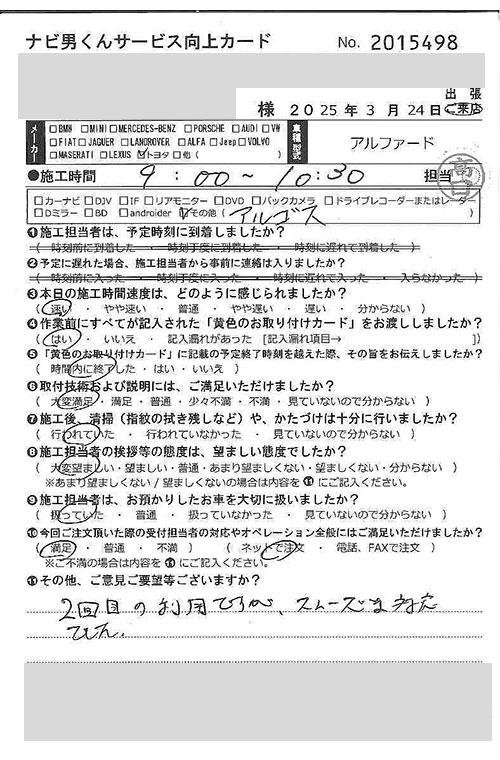 ナビ男くんサービス向上カード No. 2015498
様 2025年3月24日 出張 ご来店
メーカー □BMW □MINI □MERCEDES-BENZ □PORSCHE □AUDI □VW
□FIAT □JAGUER □LANDROVER □ALFA □Jeep □VOLVO
□MASERATI □LEXUS ☑トヨタ □他( )
車種型式 アルファード
●施工時間 9:00〜10:30 担当
□カーナビ □DJV □IF □リアモニター □DVD □バックカメラ □ドライブレコーダーまたはレーダー
□Dミラー □BD □androider ☑その他(アルゴス)
❶施工担当者は、予定時刻に到着しましたか?
( 時刻前に到着した ・ 時刻丁度に到着した ・ 時刻に遅れて到着した )
❷予定に遅れた場合、施工担当者から事前に連絡は入りましたか?
( 時刻前に入った ・ 時刻丁度に入った ・ 時刻に遅れて入った ・ 入らなかった )
❸本日の施工時間速度は、どのように感じられましたか?
( 速い ・ やや速い ・ 普通 ・ やや遅い ・ 遅い ・ 分からない )
❹作業前にすべてが記入された「黄色のお取り付けカード」をお渡ししましたか?
( はい ・ いいえ ・ 記入漏れがあった [記入漏れ項目→ ] )
❺「黄色のお取り付けカード」に記載の予定終了時刻を越えた際、その旨をお伝えしましたか?
( 時間内に終了した ・ はい ・ いいえ )
❻取付技術および説明には、ご満足いただけましたか?
( 大変満足 ・ 満足 ・ 普通 ・ 少々不満 ・ 不満 ・ 見ていないので分からない )
❼施工後、清掃(指紋の拭き残しなど)や、かたづけは十分に行いましたか?
( 行われていた ・ 行われていなかった ・ 見ていないので分からない )
❽施工担当者の挨拶等の態度は、望ましい態度でしたか?
( 大変望ましい・望ましい・普通・あまり望ましくない・望ましくない・分からない )
※あまり望ましくない/望ましくないの場合は内容を⓫にご記入ください。
❾施工担当者は、お預かりしたお車を大切に扱いましたか?
( 扱っていた ・ 普通 ・ 扱っていなかった ・ 見ていないので分からない )
❿今回ご注文頂いた際の受付担当者の対応やオペレーション全般にはご満足いただけましたか?
( 満足 ・ 普通 ・ 不満 ) ( ネットで注文 ・ 電話、FAXで注文 )
※ご不満の場合は内容を⓫にご記入ください。
⓫その他、ご意見ご要望等ございますか?
2回目の利用ですが、スムーズな対応
でした。